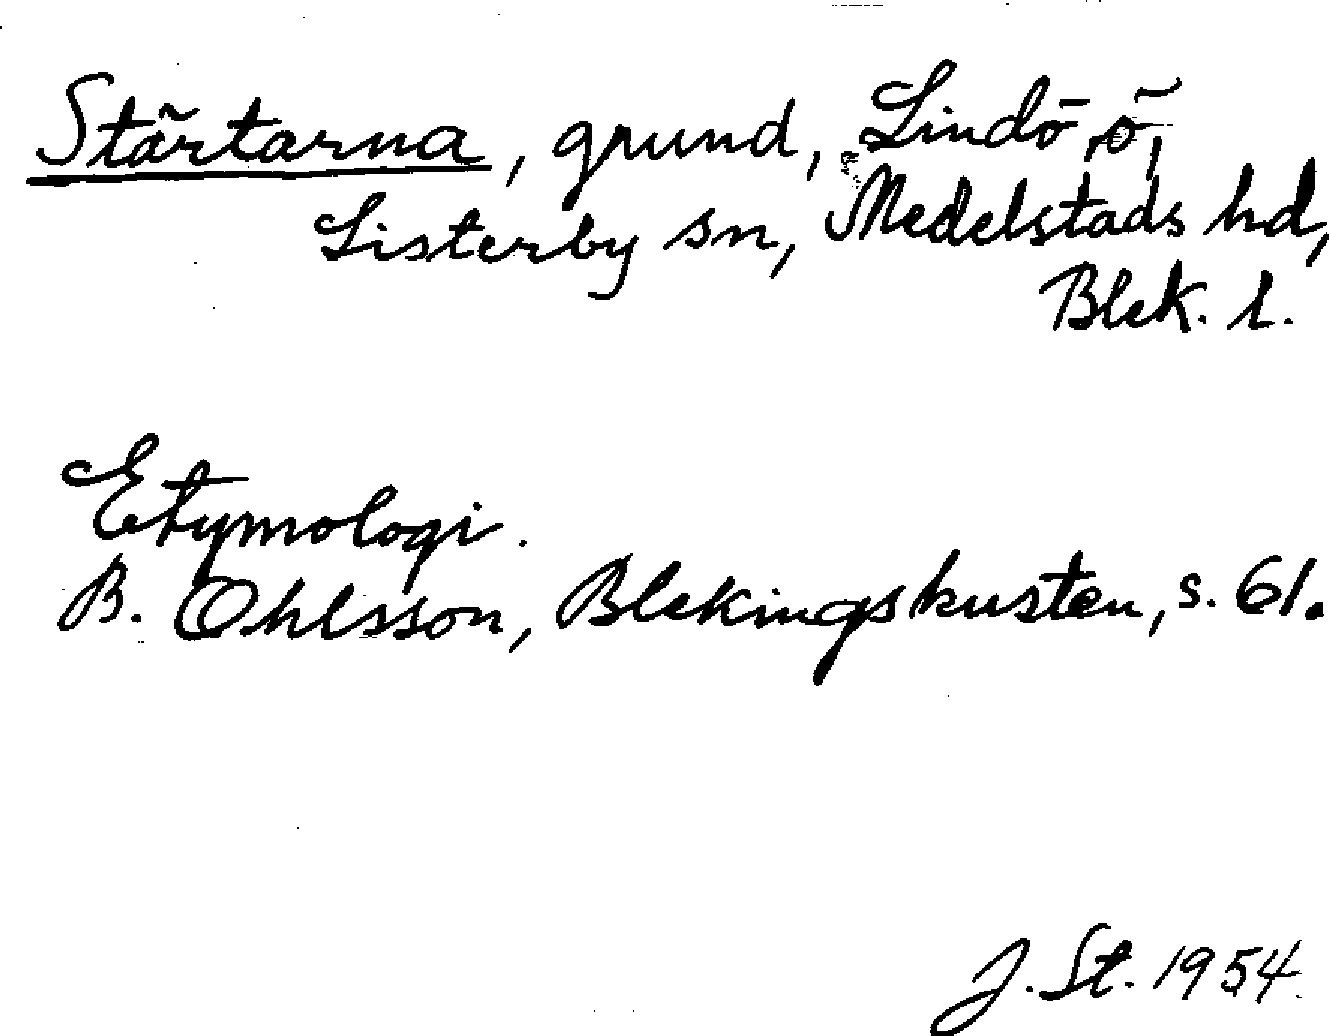 Stärtarna, grund, Lindö, ö,
Listerby sn, Medelstads hd,
Blek. l.
Etymologi.
B. Ohlsson, Blekingskusten, s. 61.
J. St. 1954.